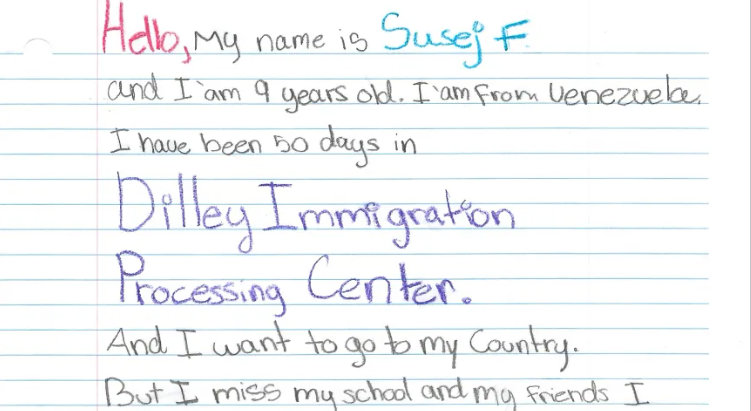 Hello, My name is Susej F
and I'am 9 years old. I'am from Venezuela.
I have been 50 days in
Dilley Immigration
Processing Center.
And I want to go to my Country.
But I miss my school and my friends I